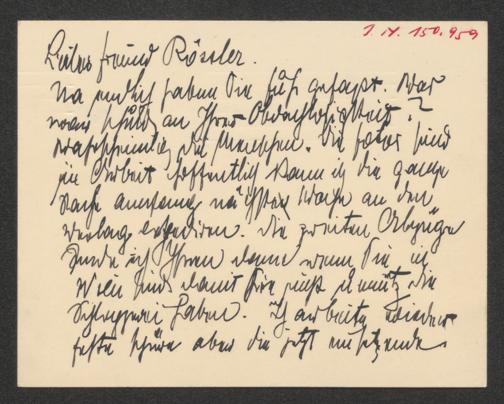 I.N. 150.959
Lieber freund Rössler.
Na endlich haben Sie sich gefasst. Wer
war schuld an Ihrer Obdachlosigkeit?
Wahrscheinlich die Menschen. Die fotos sind
in Arbeit hoffentlich kann ich die ganze
Sache anfangs nächster Woche an den
Verlag expediren. Die zweiten Abzüge
sende ich Ihnen dann wenn Sie in
Wien sind damit Sie nicht unnütz die
Schlepperei haben. Ich arbeite wieder
feste aber die jetzt einsetzende